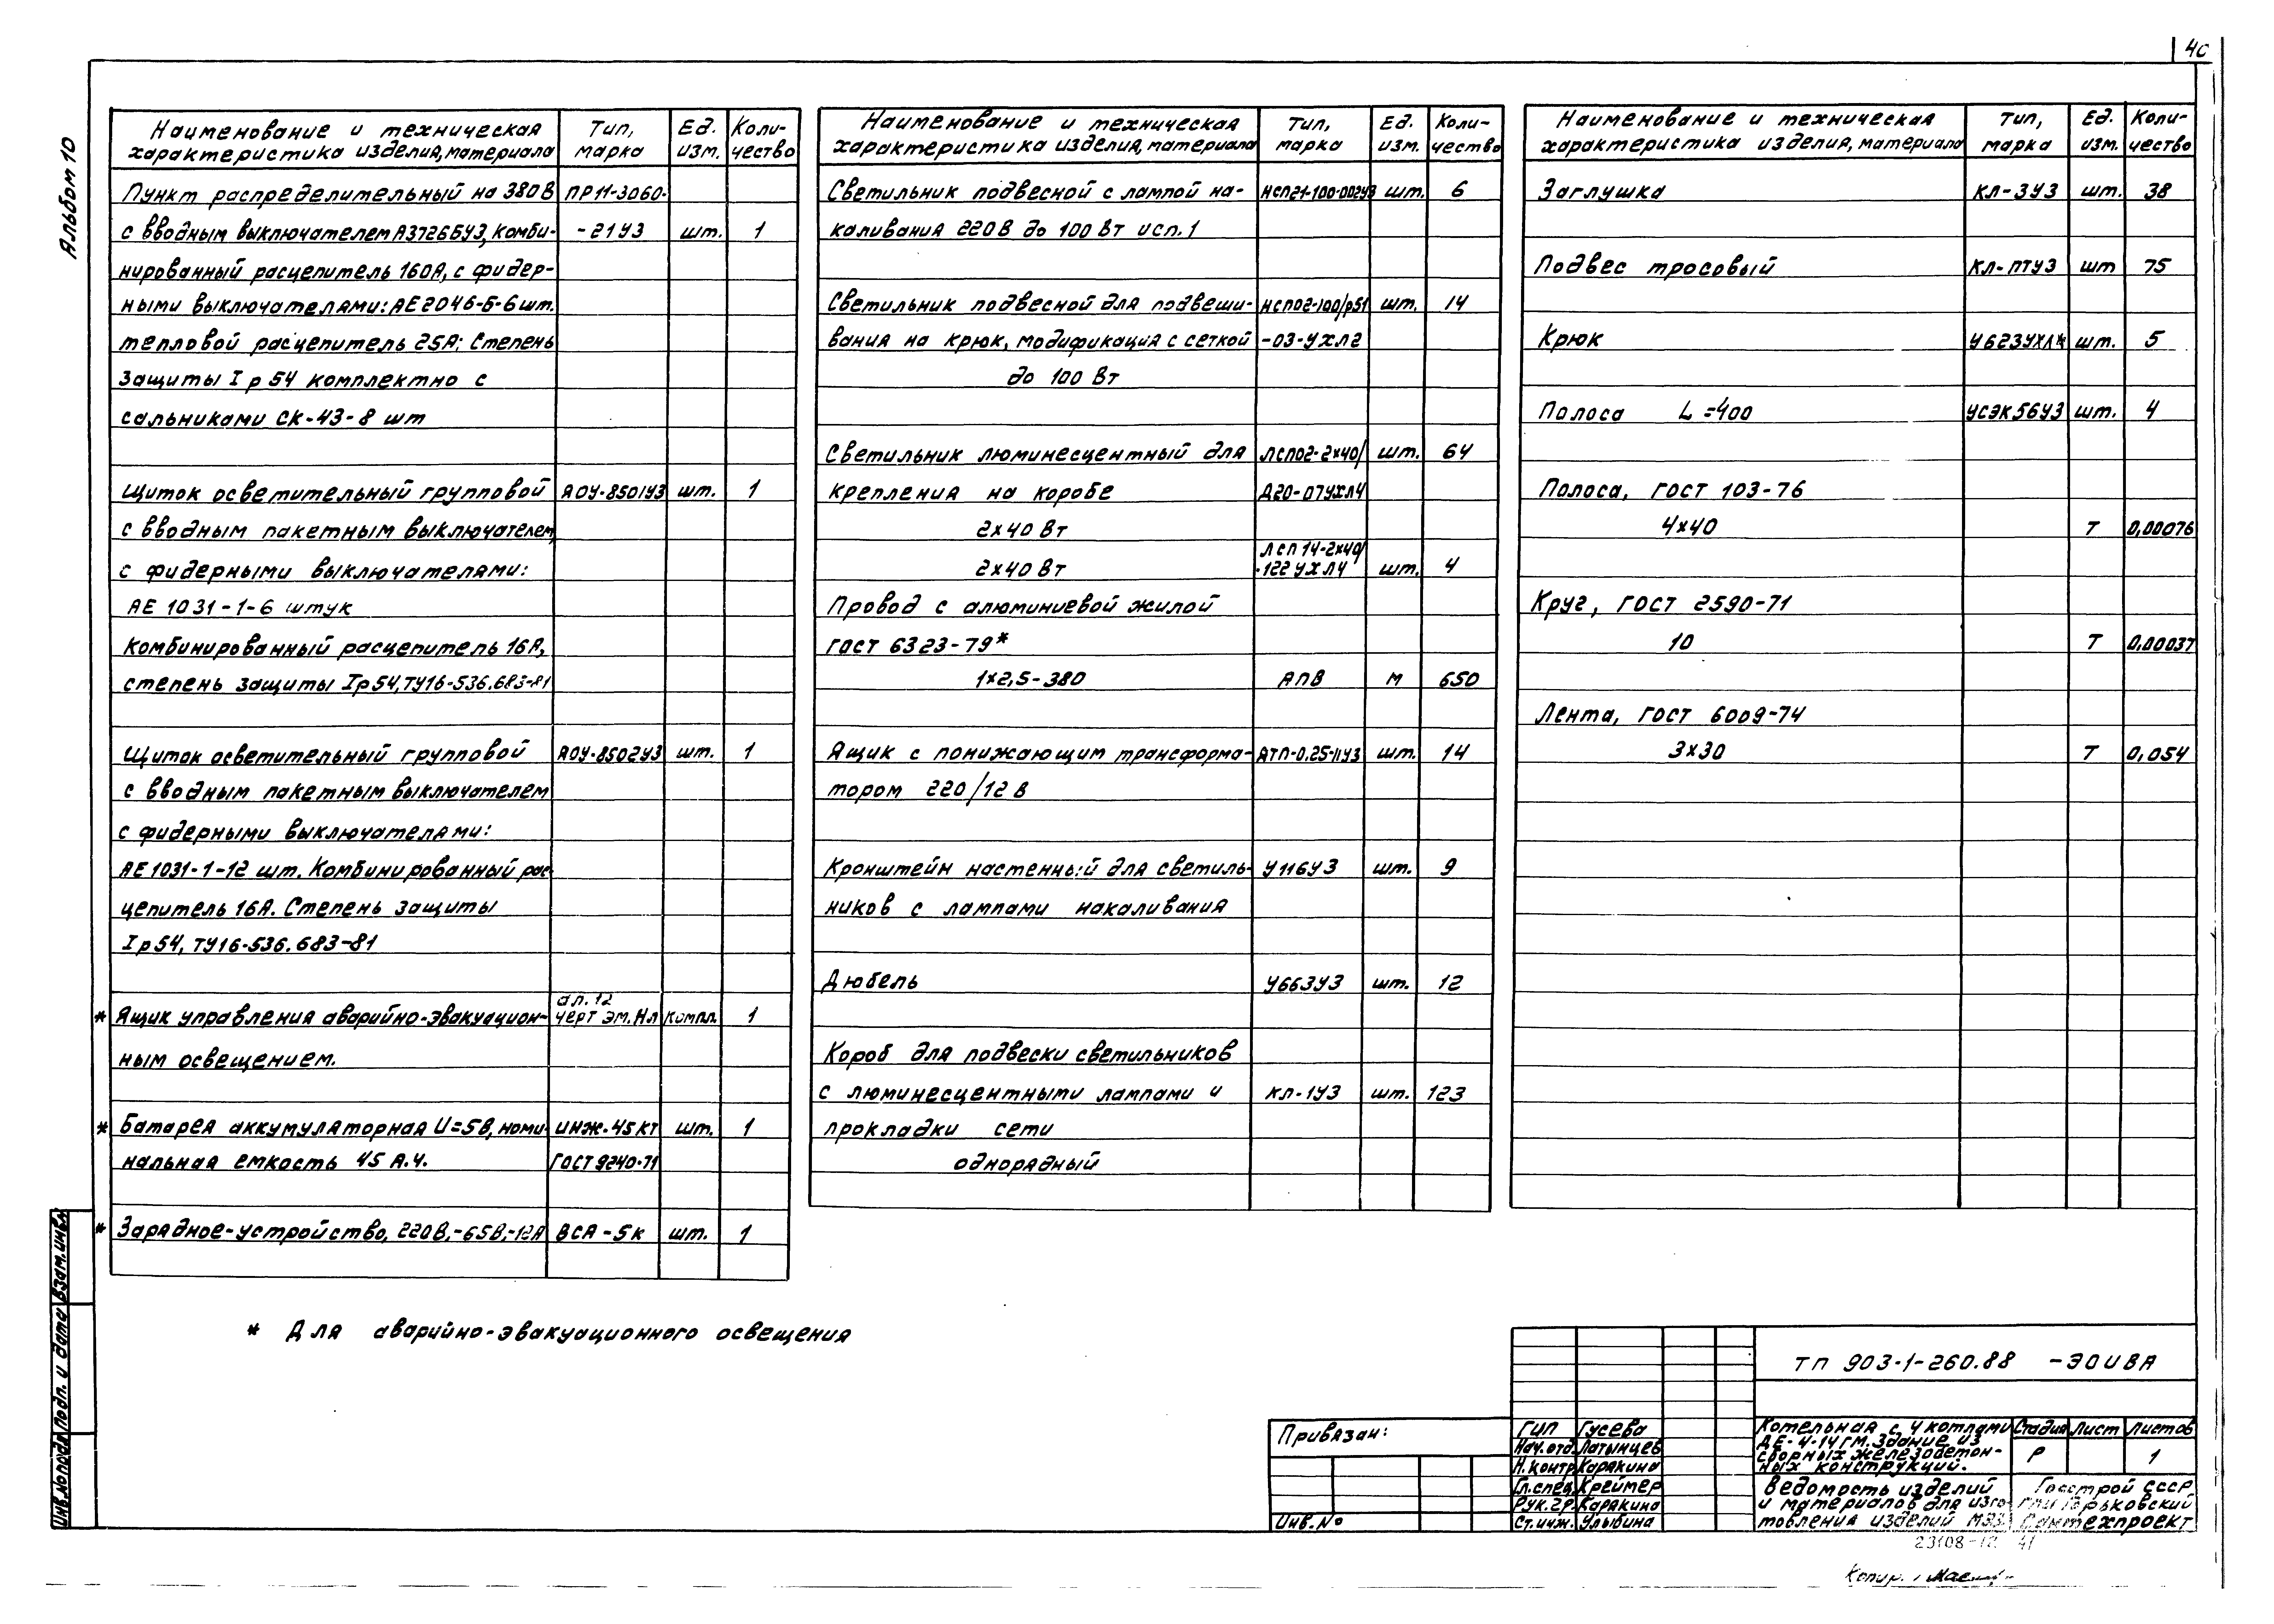 40
Альбом 10
Наименование и техническая характеристика изделия, материала | Тип, марка | Ед. изм. | Коли-чество
Пункт распределительный на 380В | ПР11-3060-
с вводным выключателем А3726БУ3, Комби- | -21У3 | шт. | 1
нированный расцепитель 160А, с фидер-
ными выключателями: АЕ2046-Б-6 шт.
тепловой расцепитель 25А; Степень
Защиты Iр54 комплектно с
сальниками СК-43-8 шт
Щиток осветительный групповой | ЯОУ-8501У3 | шт. | 1
с вводным пакетным выключателем,
с фидерными выключателями:
АЕ 1031-1-6 штук
Комбинированный расцепитель 16А,
степень защиты Iр54, ТУ16-536.683-81
Щиток осветительный групповой | ЯОУ-8502У3 | шт. | 1
с вводным пакетным выключателем
с фидерными выключателями:
АЕ1031-1-12 шт. Комбинированный рас-
цепитель 16А. Степень защиты
Iр54, ТУ16-536.683-81
* Ящик управления аварийно-эвакуацион- | ал. 12 черт эм. Нл | компл. | 1
ным освещением.
* Батарея аккумуляторная U=5В, номи- | ИНЖ-45КТ | шт. | 1
нальная емкость 45 А.ч. | ГОСТ 9240-71
* Зарядное-устройство, 220В,-65В,-12А | ВСА-5К | шт. | 1
* Для аварийно-эвакуационного освещения
Наименование и техническая характеристика изделия, материала | Тип, марка | Ед. изм. | Коли-чество
Светильник подвесной с лампой на- | НСП21-100-002У3 | шт. | 6
каливания 220В до 100 Вт исп. 1
Светильник подвесной для подвеши- | НСП02-100/р51 | шт. | 14
вания на крюк, модификация с сеткой | -03-УХЛ2
до 100 Вт
Светильник люминесцентный для | ЛСП02-2х40/ | шт. | 64
крепления на коробе | Д20-07УХЛ4
2х40 Вт
2х40 Вт | ЛСП 14-2х40/ -122 УХЛ4 | шт. | 4
Провод с алюминиевой жилой
ГОСТ 6323-79*
1х2,5-380 | АПВ | м | 650
Ящик с понижающим трансформа- | ЯТП-0,25-11У3 | шт. | 14
тором 220/12 В
Кронштейн настенный для светиль- | У116У3 | шт. | 9
ников с лампами накаливания
Дюбель | У663У3 | шт. | 12
Короб для подвески светильников
с люминесцентными лампами и | КЛ-1У3 | шт. | 123
прокладки сети
однорядный
Наименование и техническая характеристика изделия, материала | Тип, марка | Ед. изм. | Коли-чество
Заглушка | КЛ-3У3 | шт. | 38
Подвес тросовый | КЛ-ПТУ3 | шт | 75
Крюк | У623УХЛ4 | шт. | 5
Полоса L=400 | УСЭК56У3 | шт. | 4
Полоса, ГОСТ 103-76
4х40 | Т | 0,00076
Круг, ГОСТ 2590-71
10 | Т | 0,00037
Лента, ГОСТ 6009-74
3х30 | Т | 0,054
Инв.№ подл
Подп. и дата
Взам.инв.№
Привязан:
Инв.№
ГИП Гусева
Нач. отд. Латынцев
Н. контр. Карякина
Гл. спец. Креймер
Рук. гр. Карякина
Ст. инж. Улыбина
ТП 903-1-260.88 -ЭОИВА
Котельная с 4 котлами
ДЕ-4-14ГМ. Здание из
сборных железобетон-
ных конструкций.
Стадия Лист Листов
Р 1
Ведомость изделий
и материалов для изго-
товления изделий МЭЗ
Госстрой СССР
ГПИ Горьковский
Сантехпроект
23108-12 41
Копир.